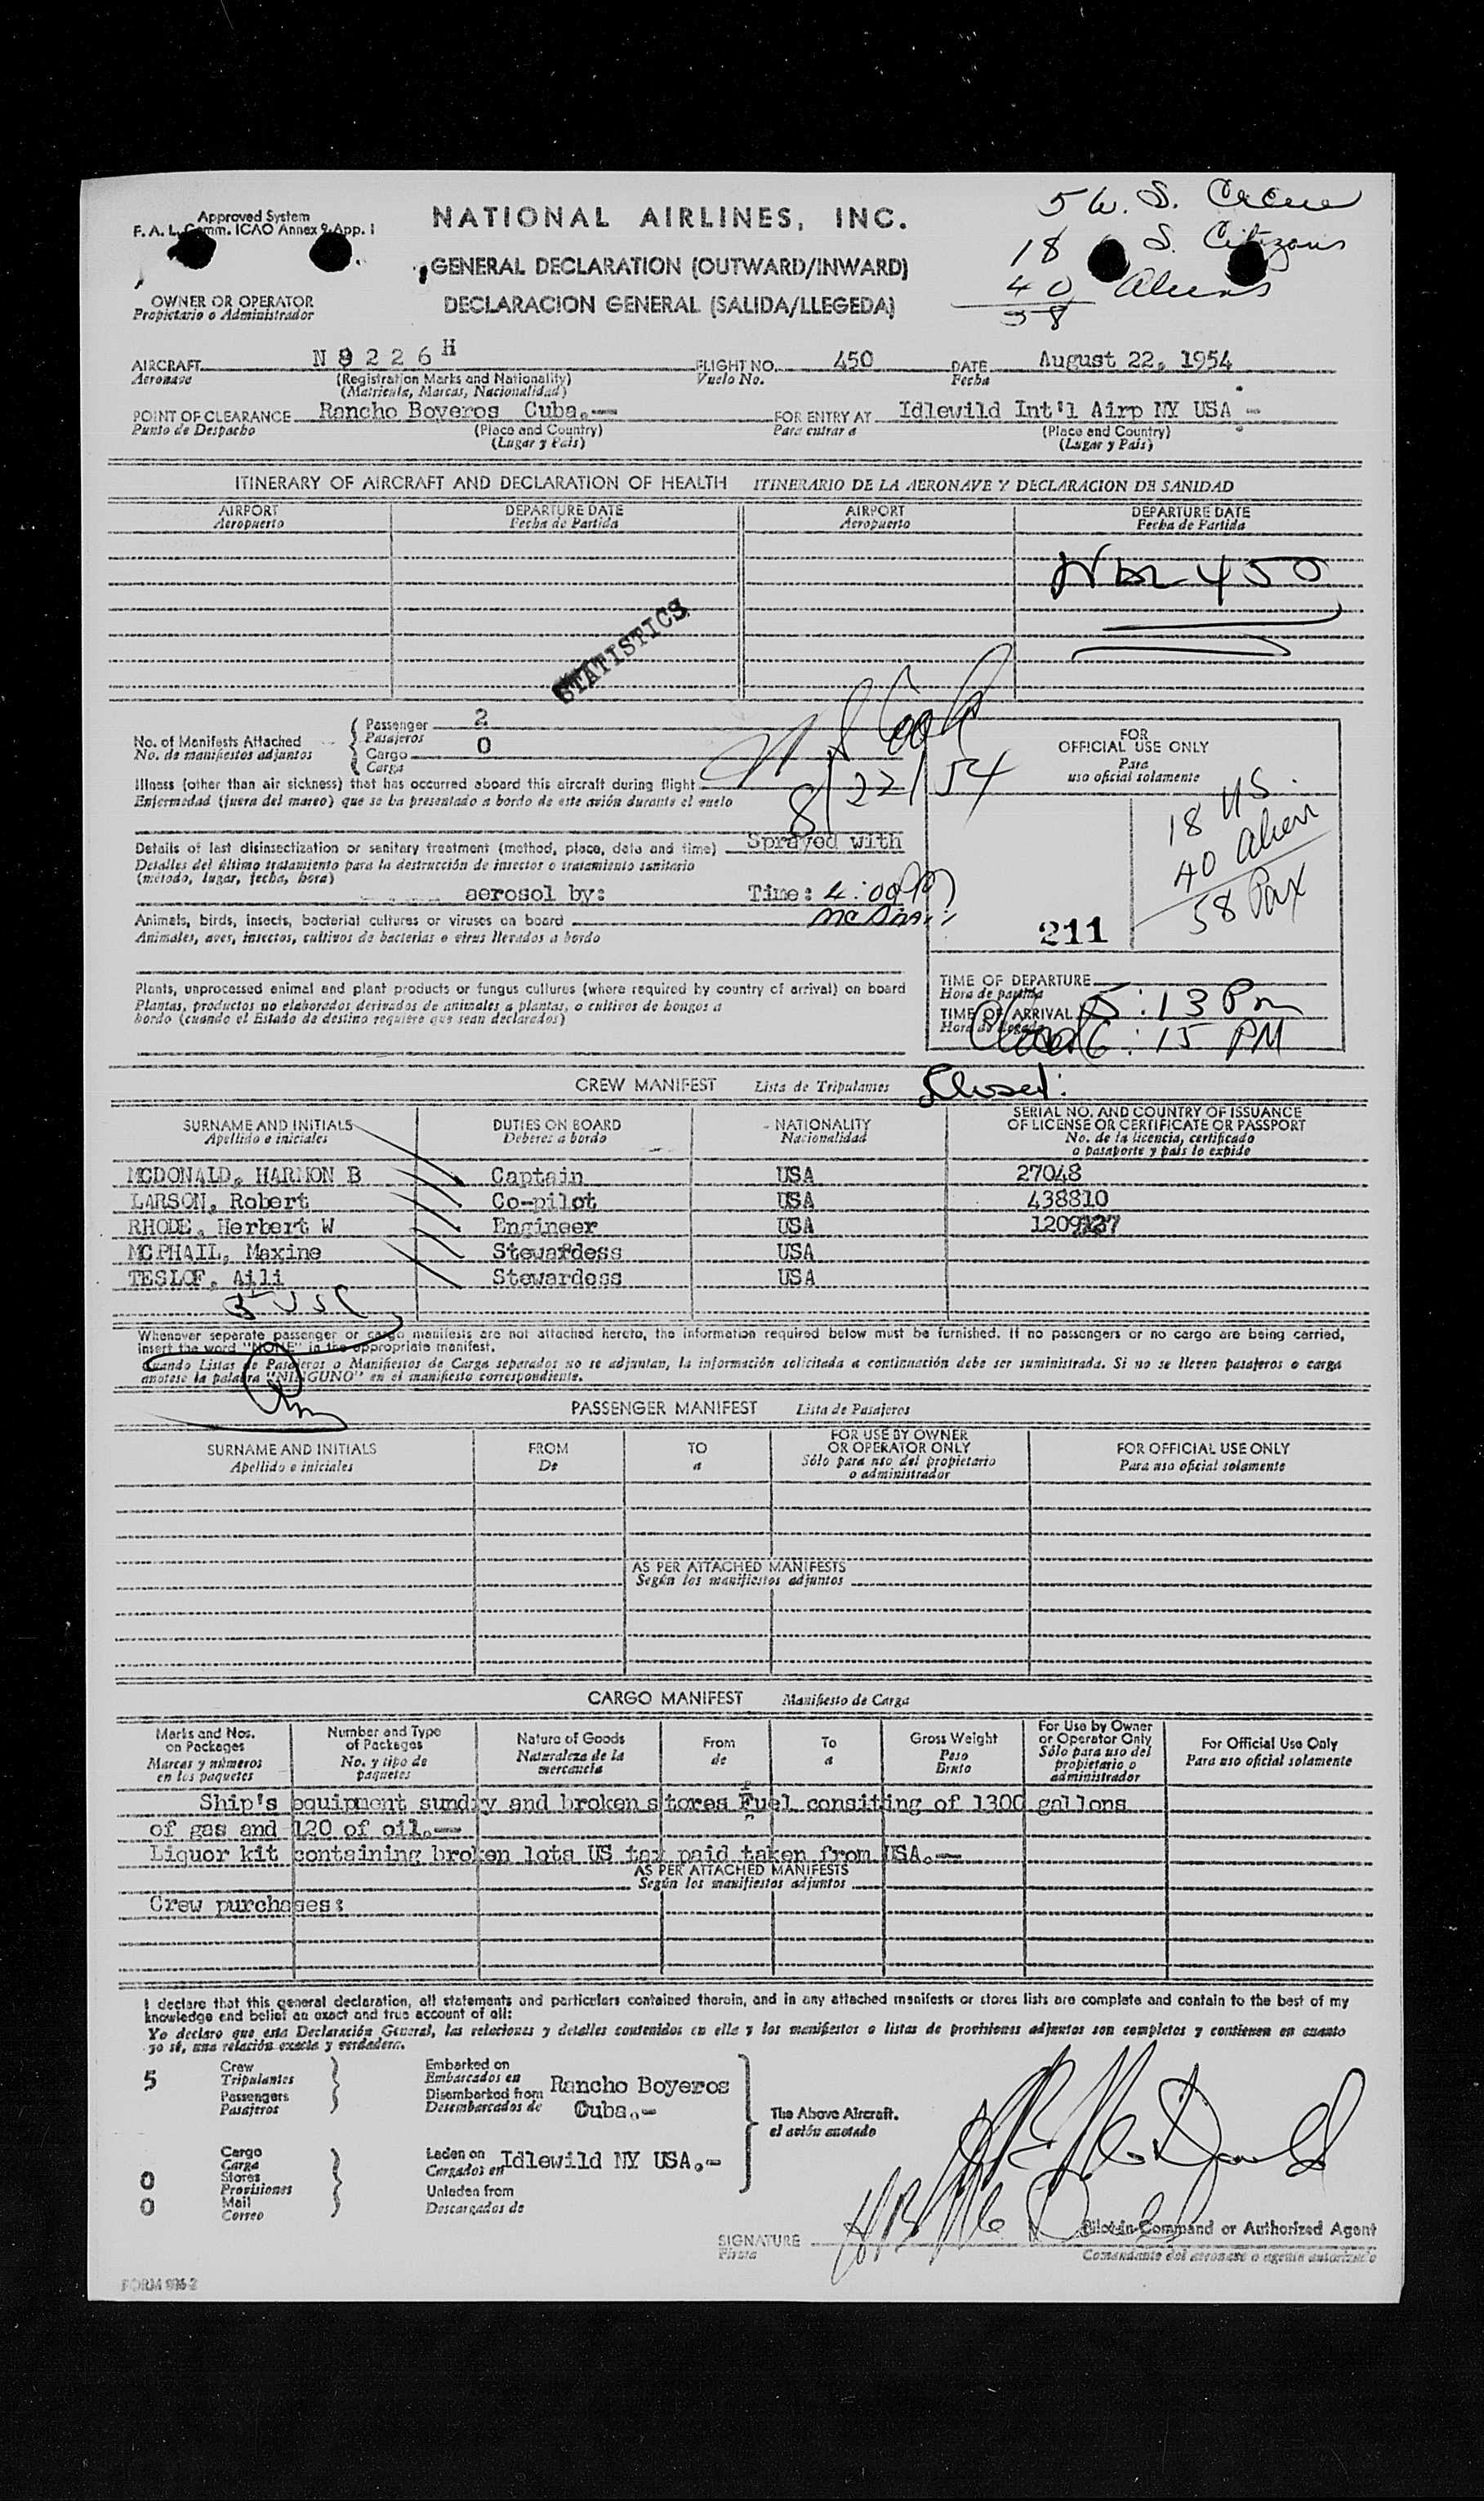 Approved System
F. A. L. Comm. ICAO Annex 9 App. 1
NATIONAL AIRLINES, INC.
GENERAL DECLARATION (OUTWARD/INWARD)
DECLARACION GENERAL (SALIDA/LLEGEDA)
5 U. S. Crew
18 S. Citizens
40 Aliens
58
OWNER OR OPERATOR
Propietario o Administrador
AIRCRAFT N 9 2 2 6 H FLIGHT NO. 450 DATE August 22, 1954
Aeronave (Registration Marks and Nationality) Vuelo No. Fecha
(Matricula, Marcas, Nacionalidad)
POINT OF CLEARANCE Rancho Boyeros Cuba.- FOR ENTRY AT Idlewild Int'l Airp NY USA -
Punto de Despacho (Place and Country) Para entrar a (Place and Country)
(Lugar y Pais) (Lugar y Pais)
ITINERARY OF AIRCRAFT AND DECLARATION OF HEALTH ITINERARIO DE LA AERONAVE Y DECLARACION DE SANIDAD
AIRPORT DEPARTURE DATE AIRPORT DEPARTURE DATE
Aeropuerto Fecha de Partida Aeropuerto Fecha de Partida
450
STATISTICS
No. of Manifests Attached Passenger 2
No. de manifiestos adjuntos Pasajeros
Cargo 0
Carga
FOR
OFFICIAL USE ONLY
Para
uso oficial solamente
Illness (other than air sickness) that has occurred aboard this aircraft during flight
Enfermedad (fuera del mareo) que se ha presentado a bordo de este avión durante el vuelo
8/22/54
18 US.
40 Alien
58 Pax
Details of last disinsectization or sanitary treatment (method, place, date and time) Sprayed with
Detalles del último tratamiento para la destrucción de insectos o tratamiento sanitario
(método, lugar, fecha, hora)
aerosol by: Time: 4:00 Pm
Animals, birds, insects, bacterial cultures or viruses on board
Animales, aves, insectos, cultivos de bacterias o virus llevados a bordo
211
Plants, unprocessed animal and plant products or fungus cultures (where required by country of arrival) on board
Plantas, productos no elaborados derivados de animales a plantas, o cultivos de hongos a
bordo (cuando el Estado de destino requiere que sean declarados)
TIME OF DEPARTURE
Hora de partida 5:13 Pm
TIME OF ARRIVAL
Hora de llegada 6:15 PM
CREW MANIFEST Lista de Tripulantes Closed:
SURNAME AND INITIALS DUTIES ON BOARD NATIONALITY SERIAL NO. AND COUNTRY OF ISSUANCE
Apellido e iniciales Deberes a bordo Nacionalidad OF LICENSE OR CERTIFICATE OR PASSPORT
No. de la licencia, certificado
o pasaporte y país lo expide
MCDONALD, HARMON B Captain USA 27048
LARSON, Robert Co-pilot USA 438810
RHODE, Herbert W Engineer USA 1209127
MCPHAIL, Maxine Stewardess USA
TESLOF, Aili Stewardess USA
5 USC
Whenever separate passenger or cargo manifests are not attached hereto, the information required below must be furnished. If no passengers or no cargo are being carried,
insert the word "NONE" in the appropriate manifest.
Cuando Listas de Pasajeros o Manifiestos de Carga separados no se adjuntan, la información solicitada a continuación debe ser suministrada. Si no se lleven pasajeros o carga
anotese la palabra "NINGUNO" en el manifiesto correspondiente.
PASSENGER MANIFEST Lista de Pasajeros
SURNAME AND INITIALS FROM TO FOR USE BY OWNER FOR OFFICIAL USE ONLY
Apellido e iniciales De a OR OPERATOR ONLY Para uso oficial solamente
Sólo para uso del propietario
o administrador
AS PER ATTACHED MANIFESTS
Según los manifiestos adjuntos
CARGO MANIFEST Manifiesto de Carga
Marks and Nos. Number and Type Nature of Goods From To Gross Weight For Use by Owner For Official Use Only
on Packages of Packages Naturaleza de la de a Peso or Operator Only Para uso oficial solamente
Marcas y números No. y tipo de mercancia Bruto Sólo para uso del
en los paquetes paquetes propietario o
administrador
Ship's equipment sundry and broken stores Fuel consiting of 1300 gallons
of gas and 120 of oil.-
Liquor kit containing broken lots US tax paid taken from USA.-
AS PER ATTACHED MANIFESTS
Según los manifiestos adjuntos
Crew purchases:
I declare that this general declaration, all statements and particulars contained therein, and in any attached manifests or stores lists are complete and contain to the best of my
knowledge and belief an exact and true account of all:
Yo declaro que esta Declaración General, las relaciones y detalles contenidos en ella y los manifiestos o listas de provisiones adjuntos son completos y contienen en cuanto
yo sé, una relación exacta y verdadera.
5 Crew Embarked on
Tripulantes Embarcados en Rancho Boyeros
Passengers Disembarked from
Pasajeros Desembarcados de Cuba.-
The Above Aircraft.
el avión anotado
Cargo Laden on Idlewild NY USA.-
Carga Cargados en
0 Stores
Provisiones Unladen from
0 Mail Descargados de
Correo
SIGNATURE H B McDonald Pilot in Command or Authorized Agent
Firma Comandante del aeronave o agente autorizado
FORM 816-2